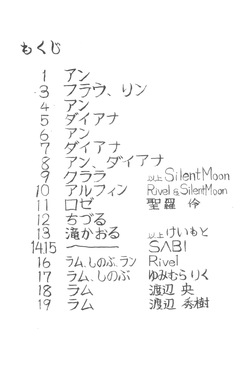 もくじ
1 アン
3 フラウ、リン
4 アン
5 ダイアナ
6 アン
7 ダイアナ
8 アン、ダイアナ
9 クララ 以上 Silent Moon
10 アルフィン Rivel & Silent Moon
11 ロゼ 聖羅 伶
12 ちづる
13 滝かおる 以上 けいもと
14,15 ――― SABI
16 ラム、しのぶ、ラン Rivel
17 ラム、しのぶ ゆみむらりく
18 ラム 渡辺 央
19 ラム 渡辺 秀樹